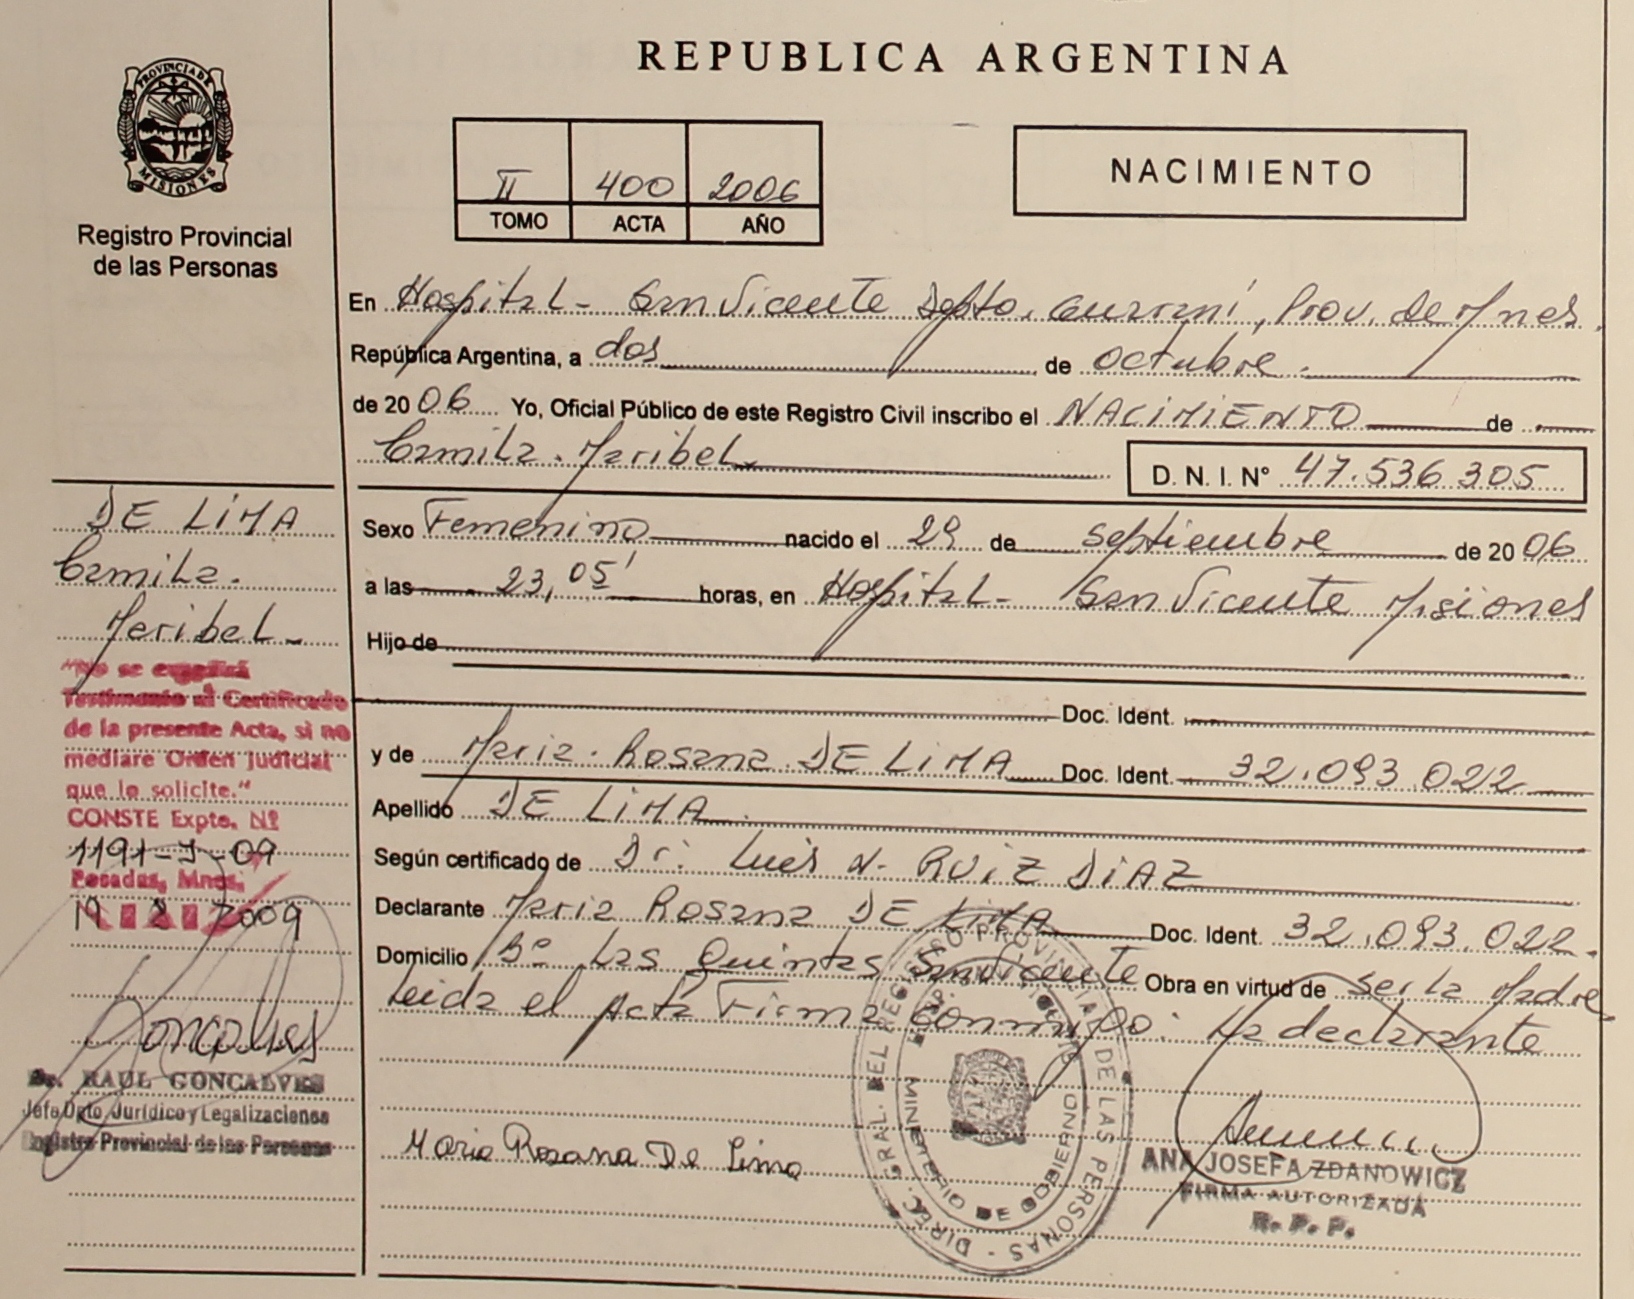 PROVINCIA DE
MISIONES
Registro Provincial
de las Personas
REPUBLICA ARGENTINA
II 400 2006
TOMO ACTA AÑO
NACIMIENTO
En Hospital - San Vicente Dpto. Guaraní, Prov. de Mnes.
República Argentina, a dos de octubre.
de 2006 Yo, Oficial Público de este Registro Civil inscribo el NACIMIENTO de
Camila. Maribel D. N. I. Nº 47.536.305
Sexo Femenino nacido el 29 de septiembre de 2006
a las 23,05' horas, en Hospital - San Vicente Misiones
Hijo de
Doc. Ident.
y de Maria. Rosana. DE LIMA Doc. Ident. 32.093.022
Apellido DE LIMA.
Según certificado de Dr. Luis N. RUIZ DIAZ
Declarante Maria Rosana DE LIMA Doc. Ident. 32.093.022.
Domicilio Bº Las Quintas San Vicente Obra en virtud de ser la Madre
Leida el Acta Firma conmigo: La declarante
Maria Rosana De Lima
DIREC. GRAL. DEL REGISTRO PROVINCIAL DE LAS PERSONAS -
MINISTERIO DE GOBIERNO
ANA JOSEFA ZDANOWICZ
FIRMA AUTORIZADA
R. P. P.
DE LIMA
Camila.
Maribel -
"No se expedirá
Testimonio ni Certificado
de la presente Acta, si no
mediare Orden Judicial
que lo solicite."
CONSTE Expte. Nº
1191-J-09
Posadas, Mnes,
2009
Goncalves
Dr. RAUL GONCALVES
Jefe Dpto. Jurídico y Legalizaciones
Registro Provincial de las Personas